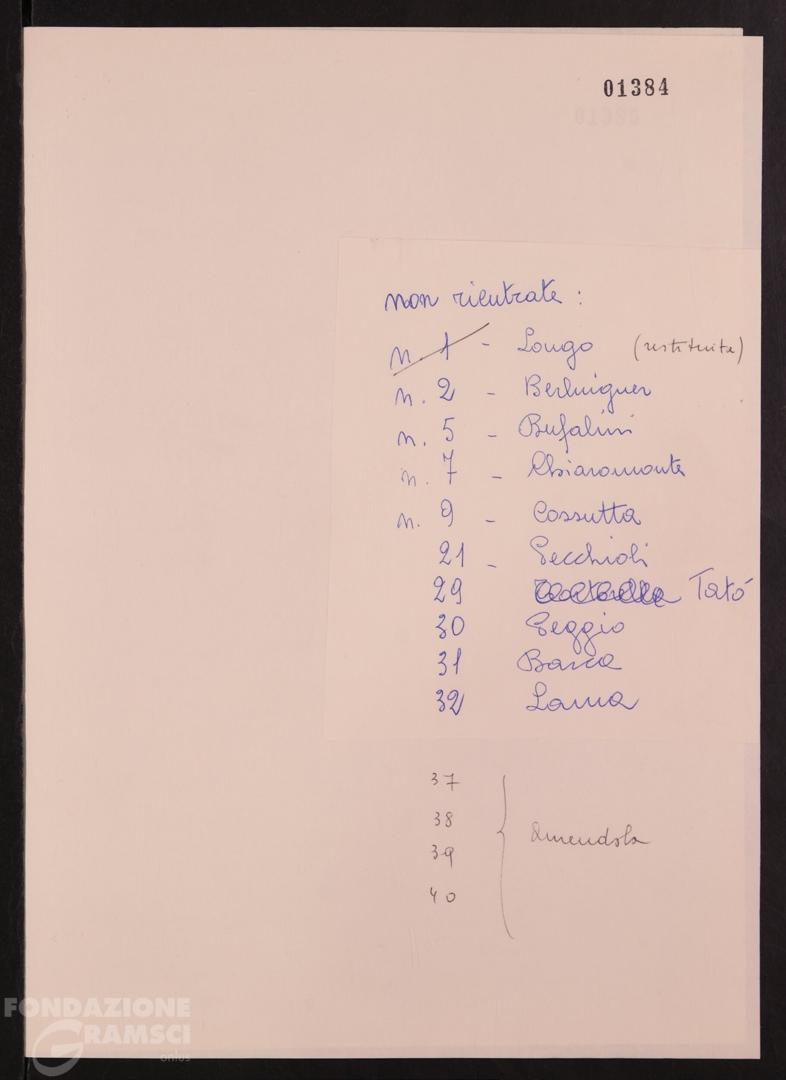 01384
non rientrate :
n. 1 - Longo (restituita)
n. 2 - Berlinguer
n. 5 - Bufalini
n. 7 - Chiaromonte
n. 9 - Cossutta
21 - Pecchioli
29 Tató
30 Peggio
31 Barca
32 Lama
37
38
39
40
Amendola
FONDAZIONE
GRAMSCI
onlus